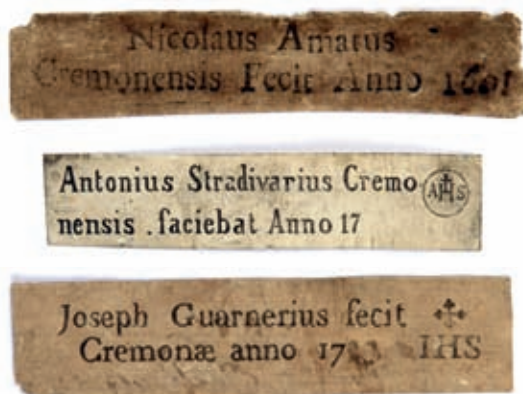 Nicolaus Amatus
Cremonensis Fecit Anno
Antonius Stradivarius Cremo
nensis . faciebat Anno 17
AHS
Joseph Guarnerius fecit
Cremonæ anno IHS